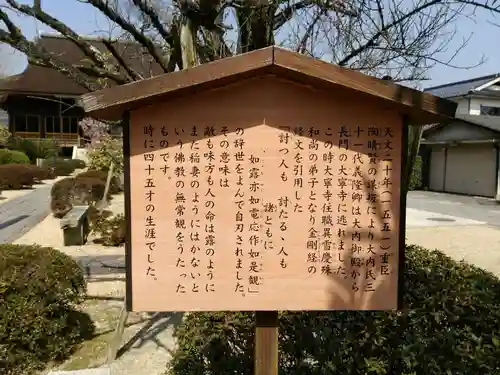 天文二十年(一五五一)重臣
陶晴賢の謀叛により大内氏三
十一代義隆公は山口から
長門の大寧寺に逃れました。
この時大寧寺住職異雪慶殊
和尚の弟子となり金剛経の
経文を引用した
「討つ人も 討たるゝ人も
諸ともに
如露亦如電応作如是観」
の辞世をよんで自刃されました。
その意味は
敵も味方も人の命は露のように
また稲妻のようにはかないと
いう佛教の無常観をうたった
ものです。
時に四十五才の生涯でした。